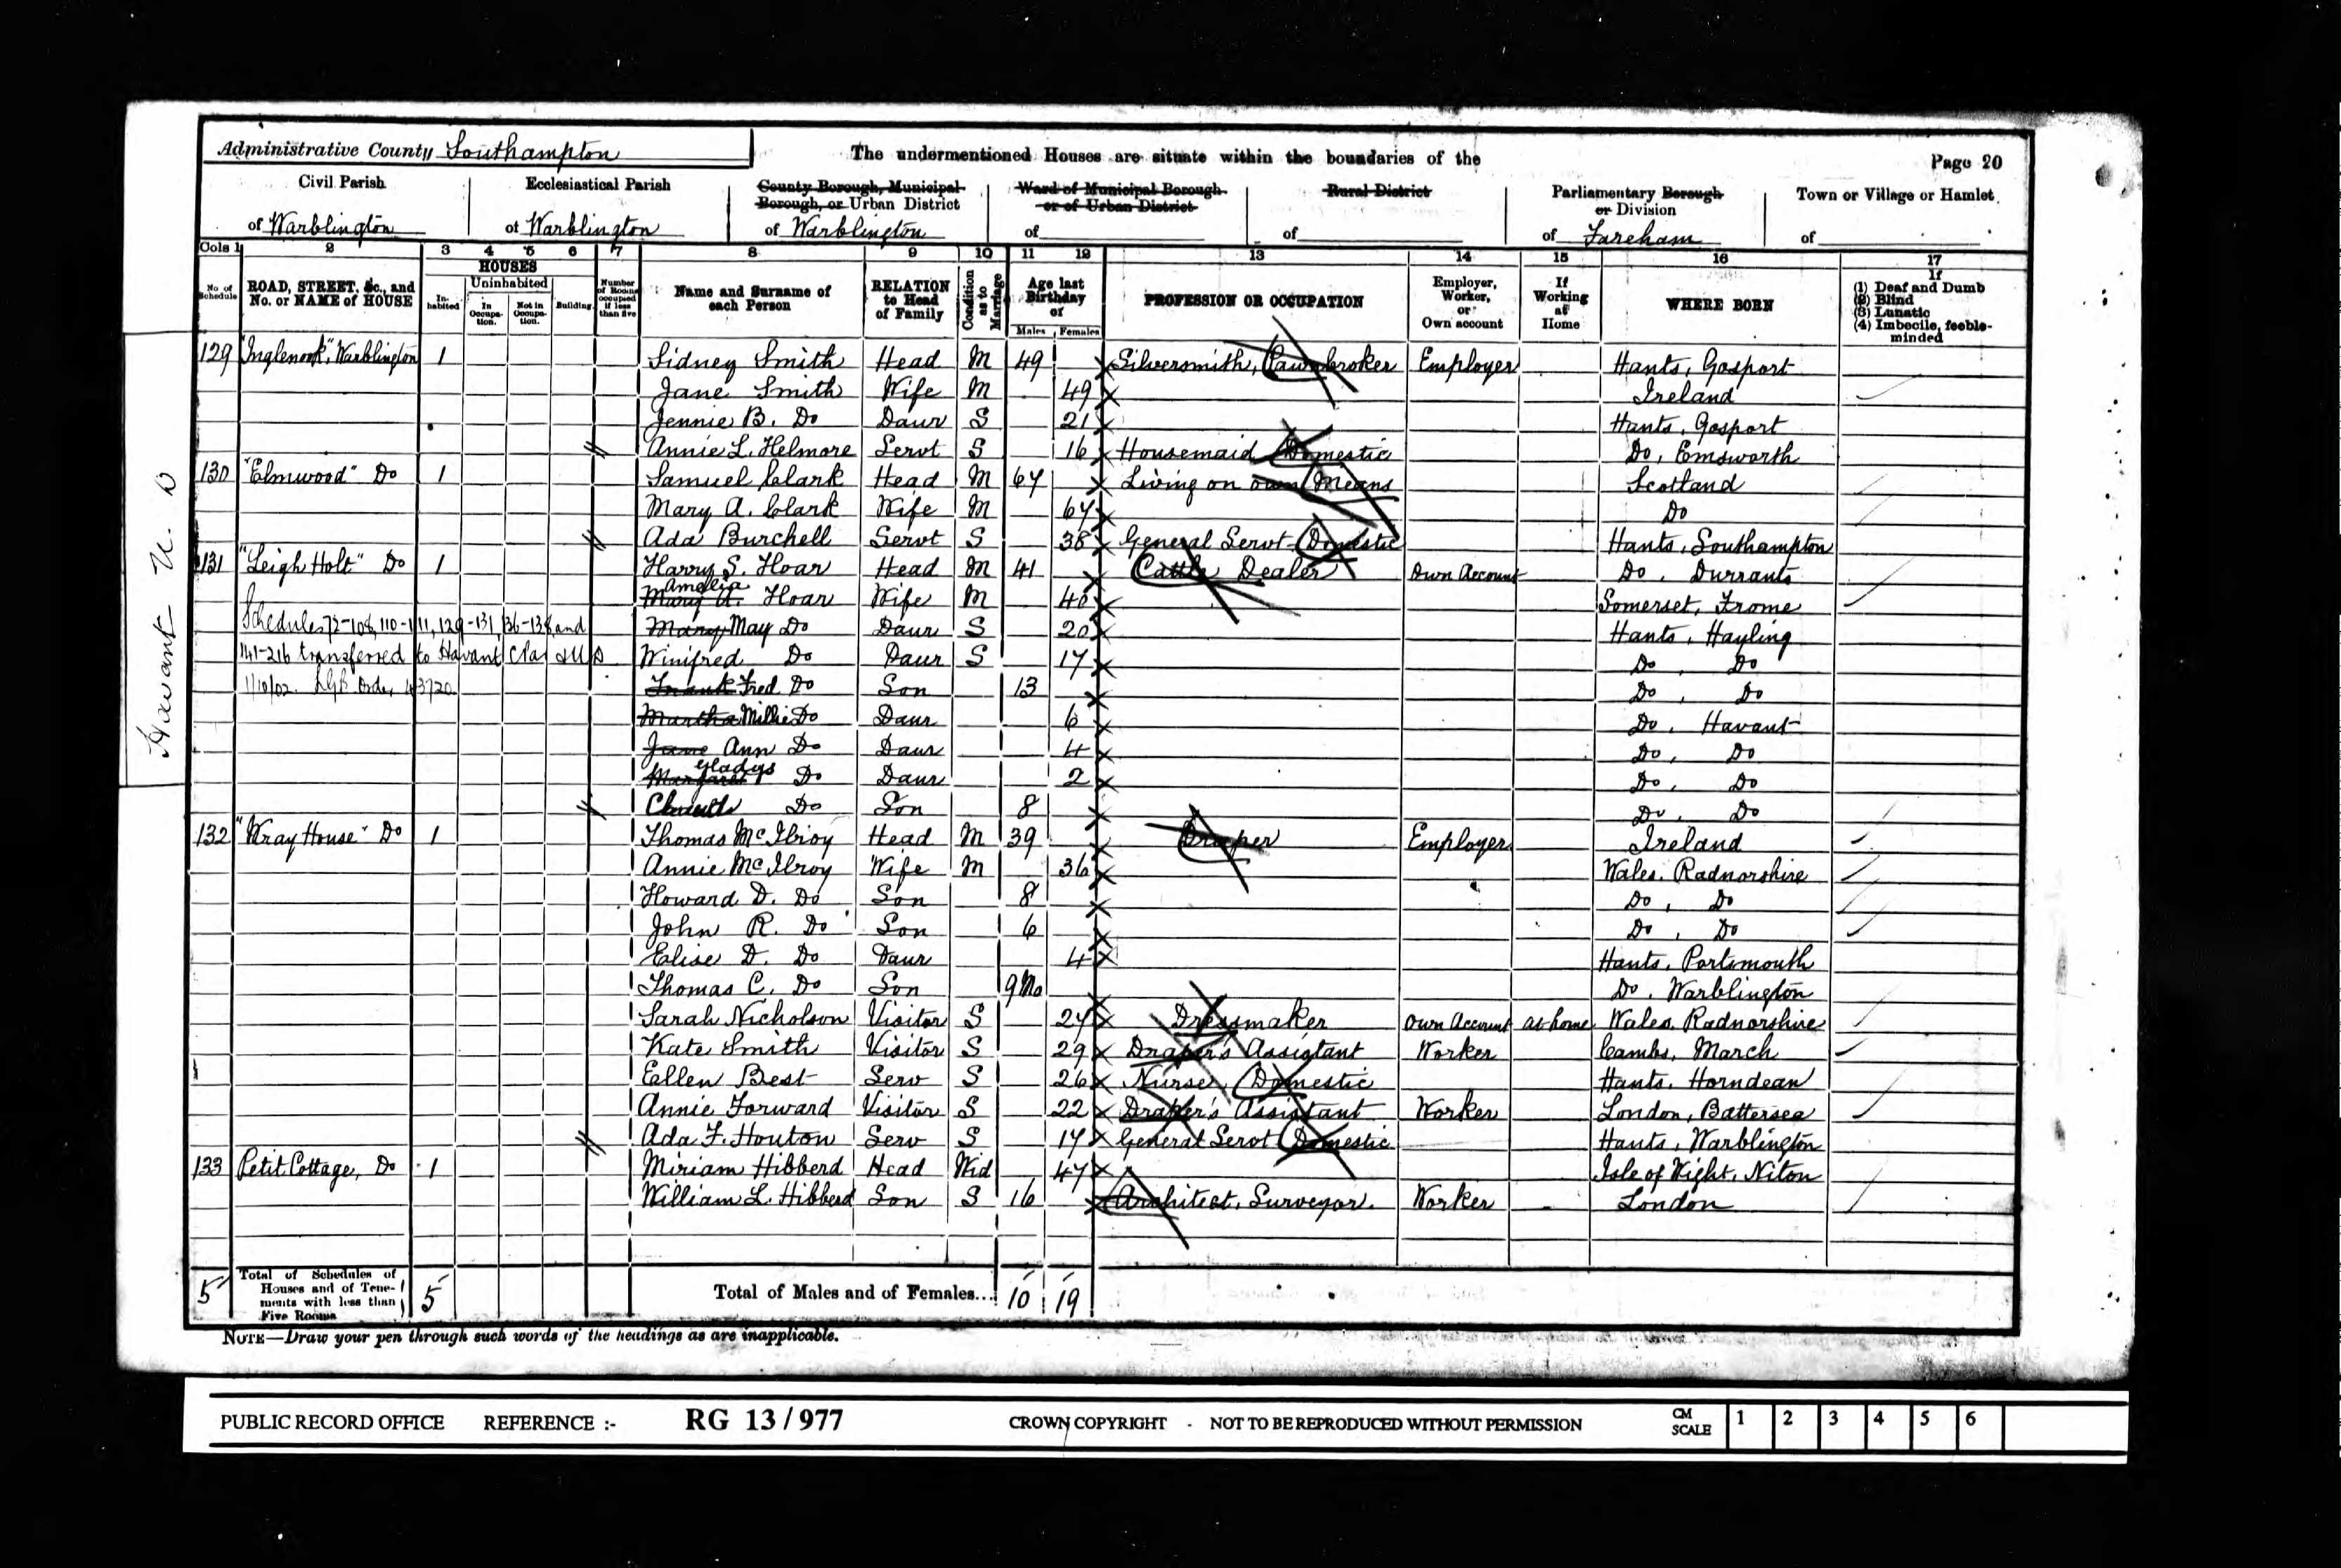 Administrative County Southampton
The undermentioned Houses are situate within the boundaries of the
Page 20
Civil Parish
of Warblington
Ecclesiastical Parish
of Warblington
County Borough, Municipal
Borough, or Urban District
of Warblington
Ward of Municipal Borough
or of Urban District
of
Rural District
of
Parliamentary Borough
or Division
of Fareham
Town or Village or Hamlet
of
Cols 1 2 3 4 5 6 7 8 9 10 11 12 13 14 15 16 17
No. of Schedule
ROAD, STREET, &c., and No. or NAME of HOUSE
HOUSES
Inhabited
Uninhabited
In Occupation.
Not in Occupation.
Building
Number of Rooms occupied if less than five
Name and Surname of each Person
RELATION to Head of Family
Condition as to Marriage
Age last Birthday of
Males Females
PROFESSION OR OCCUPATION
Employer, Worker, or Own account
If Working at Home
WHERE BORN
If
(1) Deaf and Dumb
(2) Blind
(3) Lunatic
(4) Imbecile, feeble-minded
129 "Inglenook", Warblington 1 Sidney Smith Head M 49 Silversmith, Pawnbroker Employer Hants, Gosport
Jane Smith Wife M 49 Ireland
Jennie B. Do Daur S 21 Hants, Gosport
Annie L. Helmore Servt S 16 Housemaid Domestic Do, Emsworth
130 "Elmwood" Do 1 Samuel Clark Head M 67 Living on own Means Scotland
Mary A. Clark Wife M 67 Do
Ada Burchell Servt S 38 General Servt Domestic Hants, Southampton
131 "Leigh Holt" Do 1 Harry S. Hoar Head M 41 Cattle Dealer Own Account Do, Durrants
Amelia
Mary A. Hoar Wife M 40 Somerset, Frome
Schedules 72-108, 110-111, 129-131, 136-138 and Mary May Do Daur S 20 Hants, Hayling
141-216 transferred to Havant Winifred Do Daur S 17 Do, Do
1/10/02. LGB Order 43720 Frank Fred Do Son 13 Do, Do
Martha Millie Do Daur 6 Do, Havant
Jane Ann Do Daur 4 Do, Do
Gladys
Margaret Do Daur 2 Do, Do
Do Son 8 Do, Do
132 "Wray House" Do 1 Thomas McIlroy Head M 39 Draper Employer Ireland
Annie McIlroy Wife M 36 Wales, Radnorshire
Howard D. Do Son 8 Do, Do
John R. Do Son 6 Do, Do
Elise D. Do Daur 4 Hants, Portsmouth
Thomas C. Do Son 9 Mo Do, Warblington
Sarah Nicholson Visitor S 27 Dressmaker Own Account At home Wales, Radnorshire
Kate Smith Visitor S 29 Draper's Assistant Worker Cambs, March
Ellen Best Serv S 26 Nurse, Domestic Hants, Horndean
Annie Forward Visitor S 22 Draper's Assistant Worker London, Battersea
Ada F. Houton Serv S 17 General Servt Domestic Hants, Warblington
133 Petit Cottage, Do 1 Miriam Hibberd Head Wid 47 Isle of Wight, Niton
William L. Hibberd Son S 16 Architect, Surveyor. Worker London
Havant U. D
5 Total of Schedules of Houses and of Tenements with less than Five Rooms 5 Total of Males and of Females... 10 19
NOTE—Draw your pen through such words of the headings as are inapplicable.
PUBLIC RECORD OFFICE REFERENCE :- RG 13/977 CROWN COPYRIGHT - NOT TO BE REPRODUCED WITHOUT PERMISSION CM SCALE 1 2 3 4 5 6